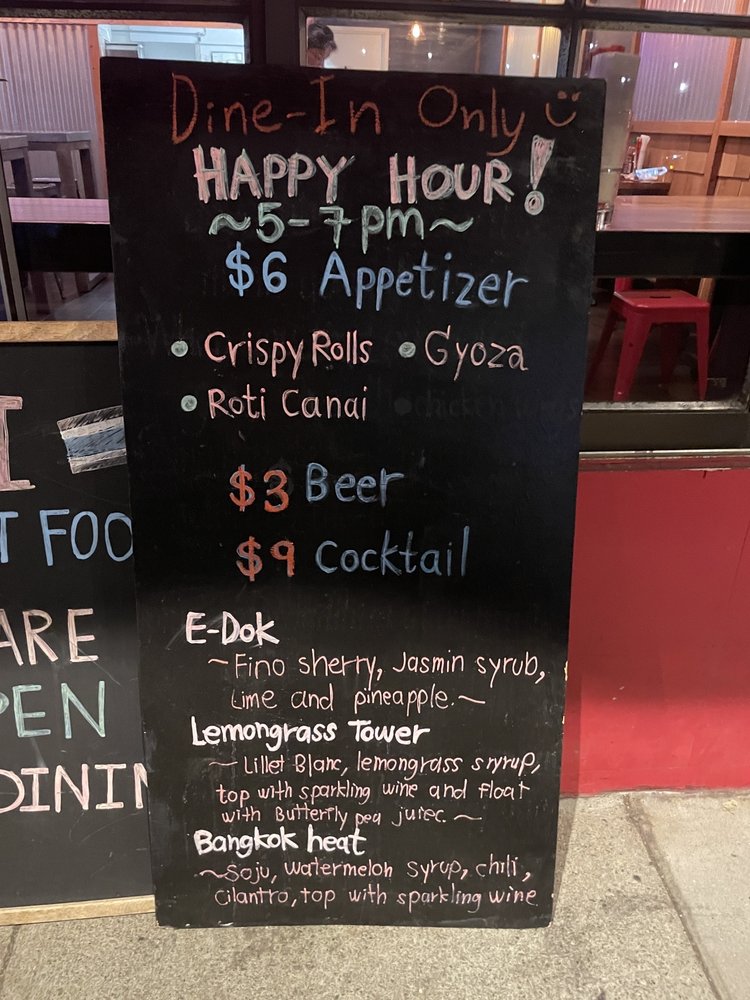 Dine-In Only
HAPPY HOUR!
~5-7pm~
$6 Appetizer
• Crispy Rolls • Gyoza
• Roti Canai
$3 Beer
$9 Cocktail
E-Dok
~Fino sherry, Jasmin syrub,
Lime and pineapple.~
Lemongrass Tower
~ Lillet Blanc, lemongrass syryrup,
top with sparkling wine and float
with Butterfly pea juiec. ~
Bangkok heat
~Soju, watermelon syrup, chili,
cilantro, top with sparkling wine
I
T FOO
ARE
PEN
DININ